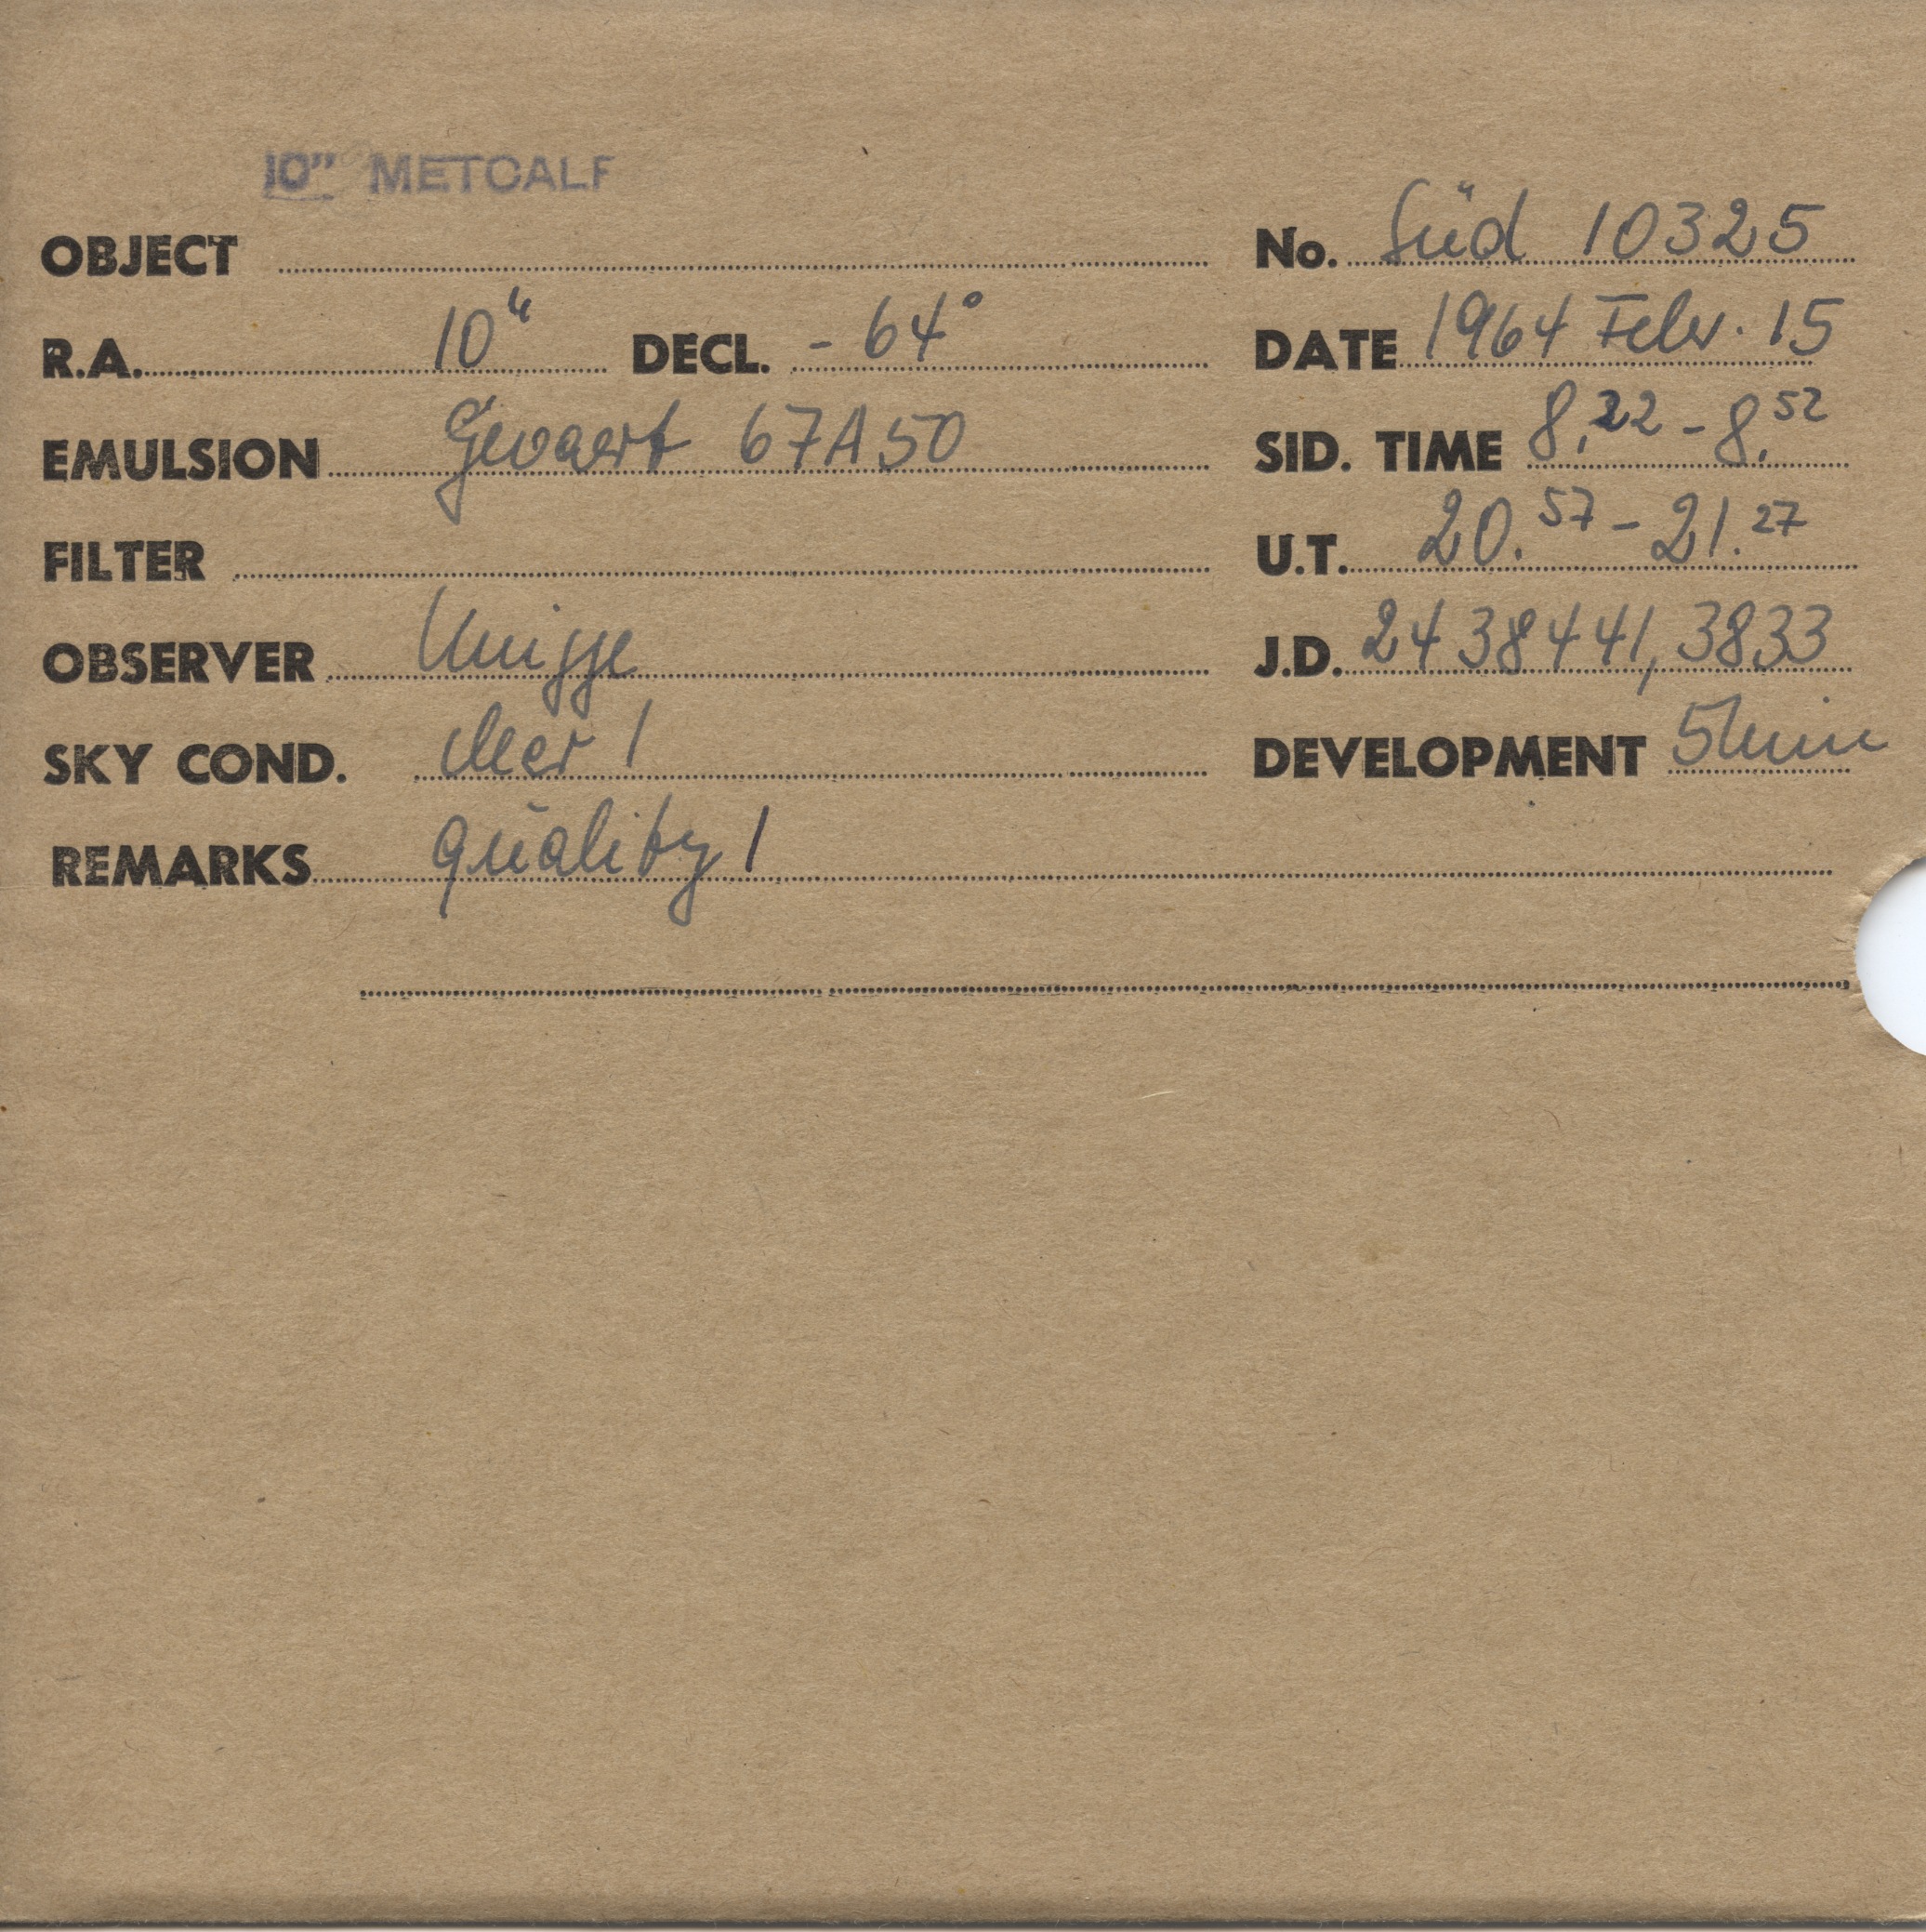 10" METCALF
OBJECT No. Süd 10325
R.A. 10h DECL. - 64° DATE 1964 Febr. 15
EMULSION Gevaert 67A50 SID. TIME 8.22 - 8.52
FILTER U.T. 20.57 - 21.27
OBSERVER J.D. 2438441,3833
SKY COND. 1 DEVELOPMENT 5 min
REMARKS quality 1